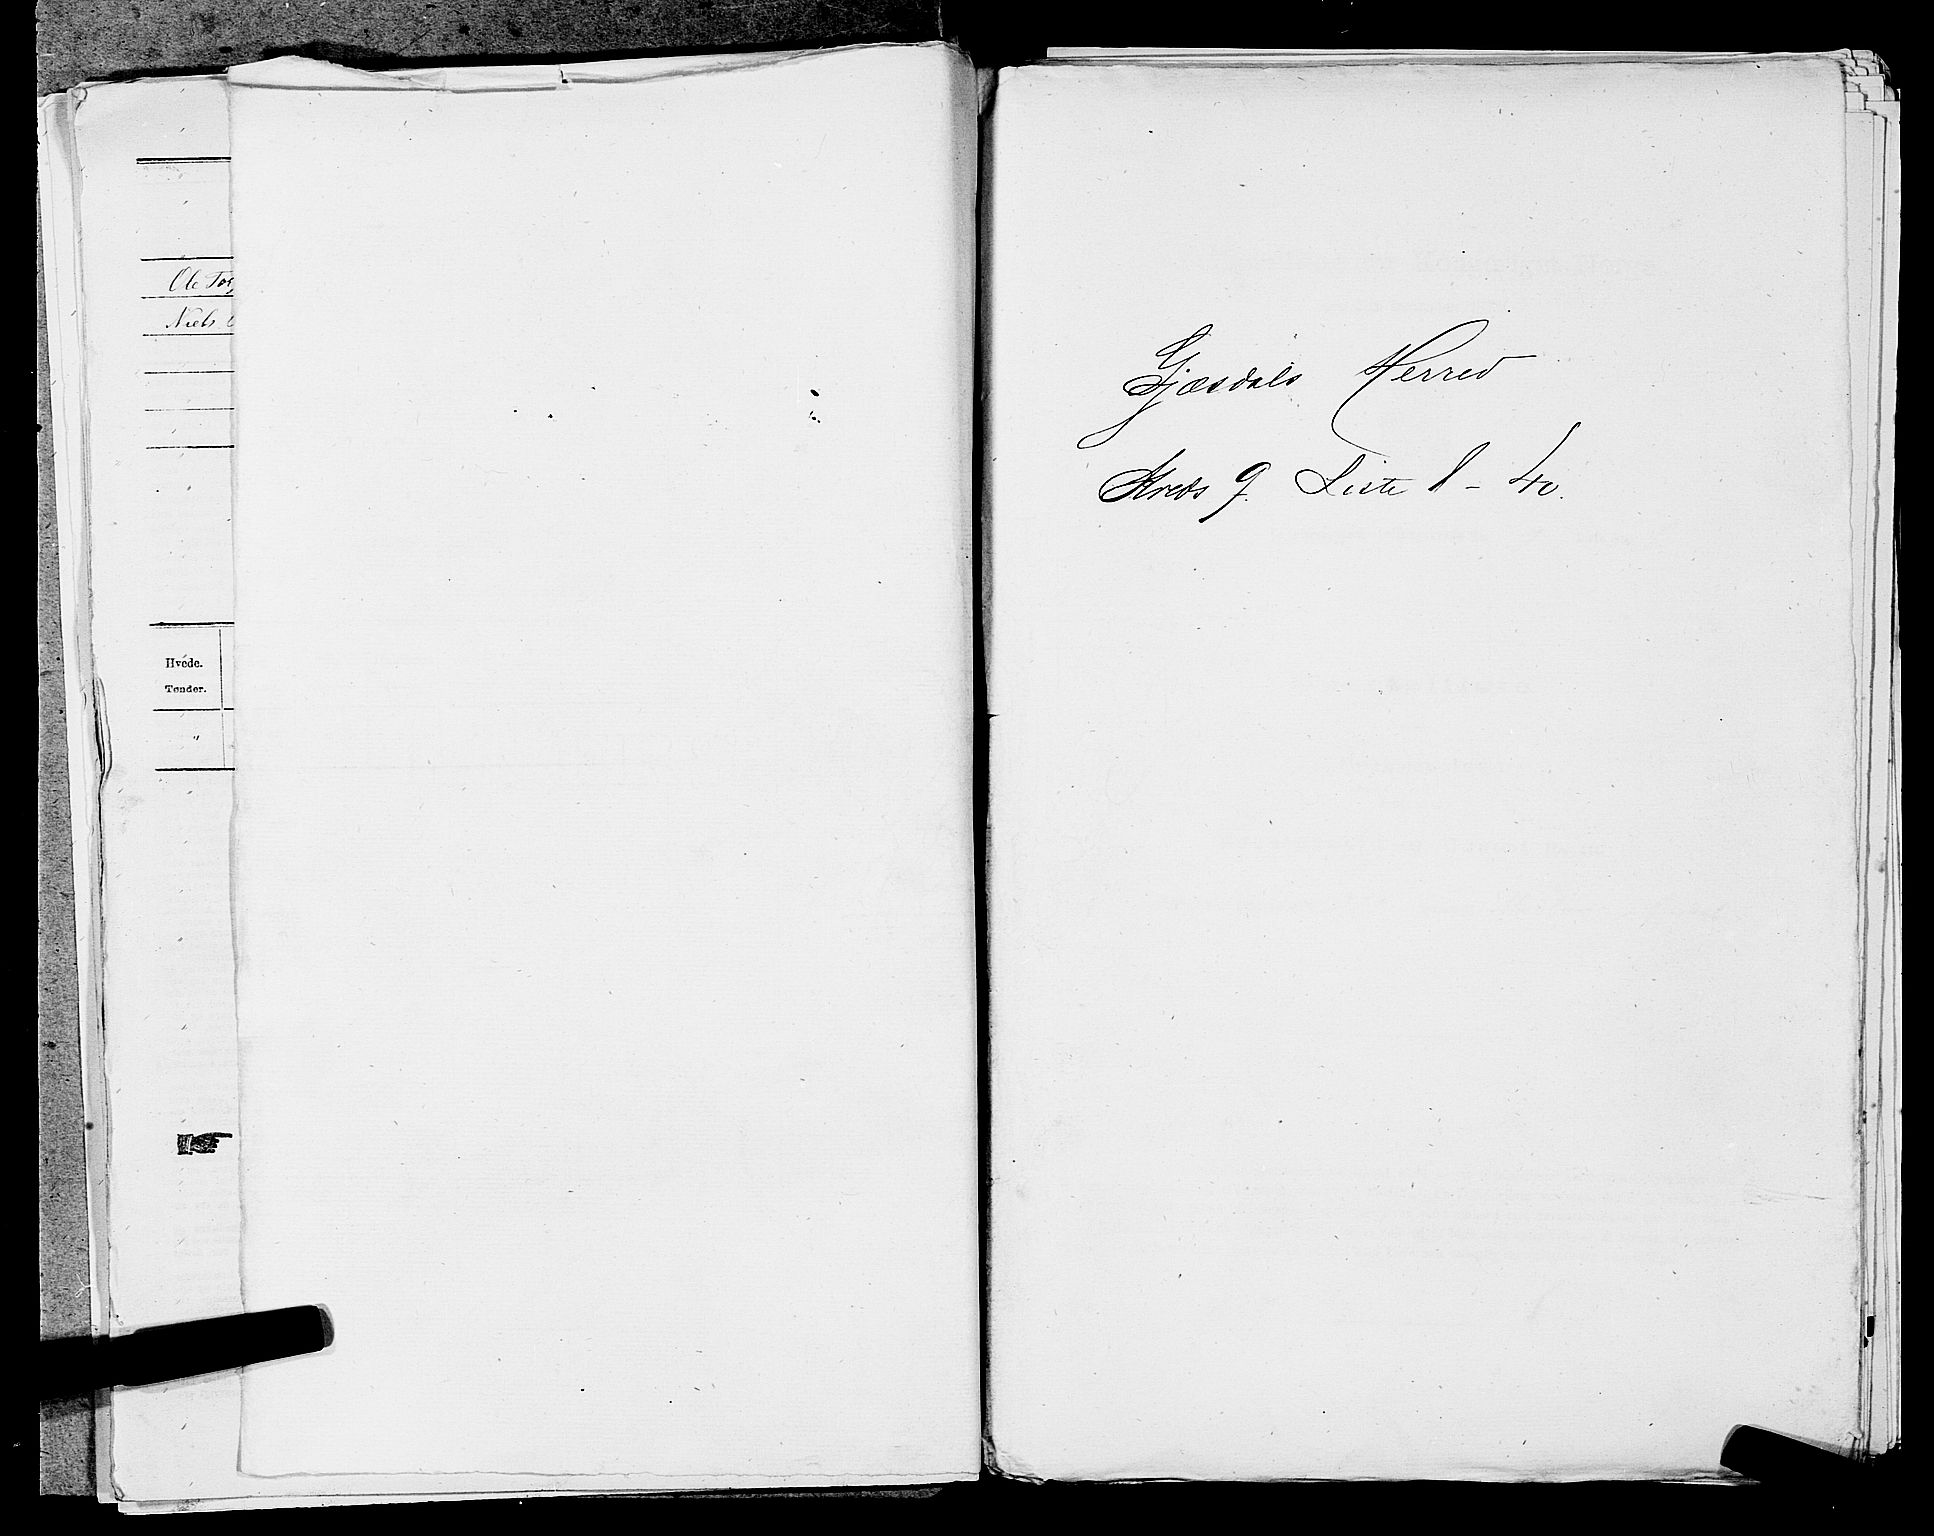 Ole
Niels
Hvede.
Tønder.
"
Gjæsdals Herred
Kreds 9. Liste 1 - 40.